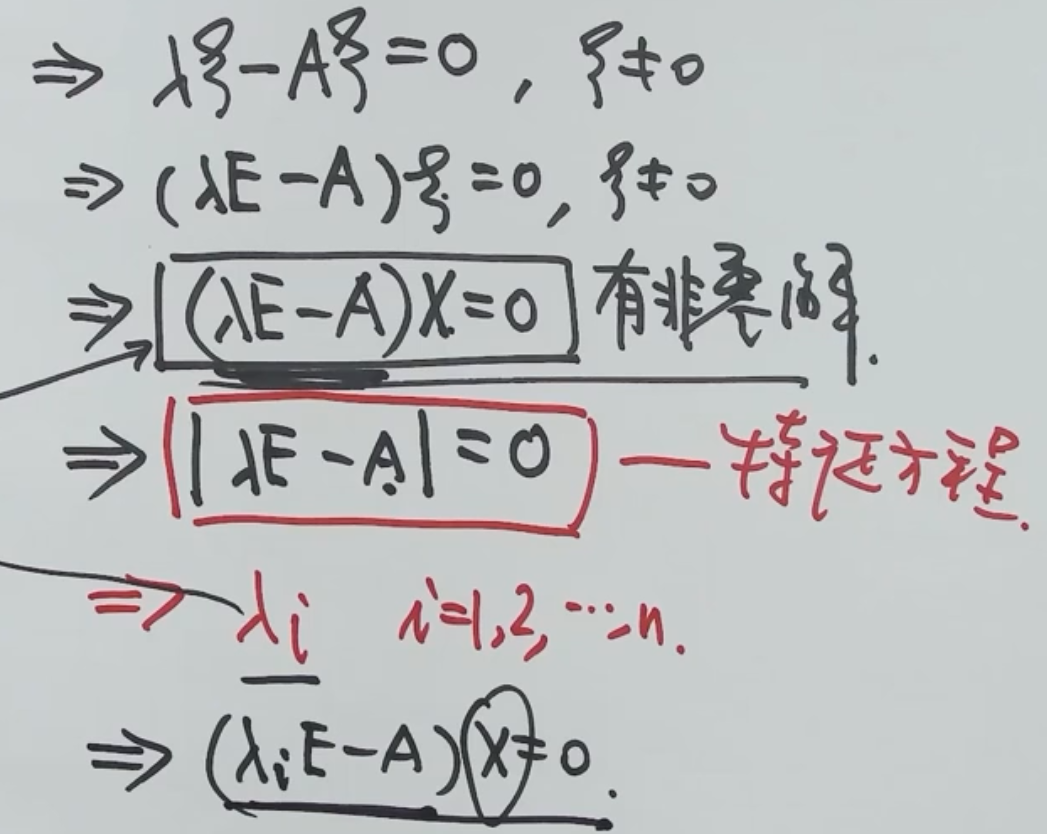 ⇒ λξ-Aξ=0, ξ≠0
⇒ (λE-A)ξ=0, ξ≠0
⇒ (λE-A)X=0 有非零解.
⇒ |λE-A|=0 — 特征方程.
⇒ λi i=1,2,…,n.
⇒ (λiE-A)X=0.